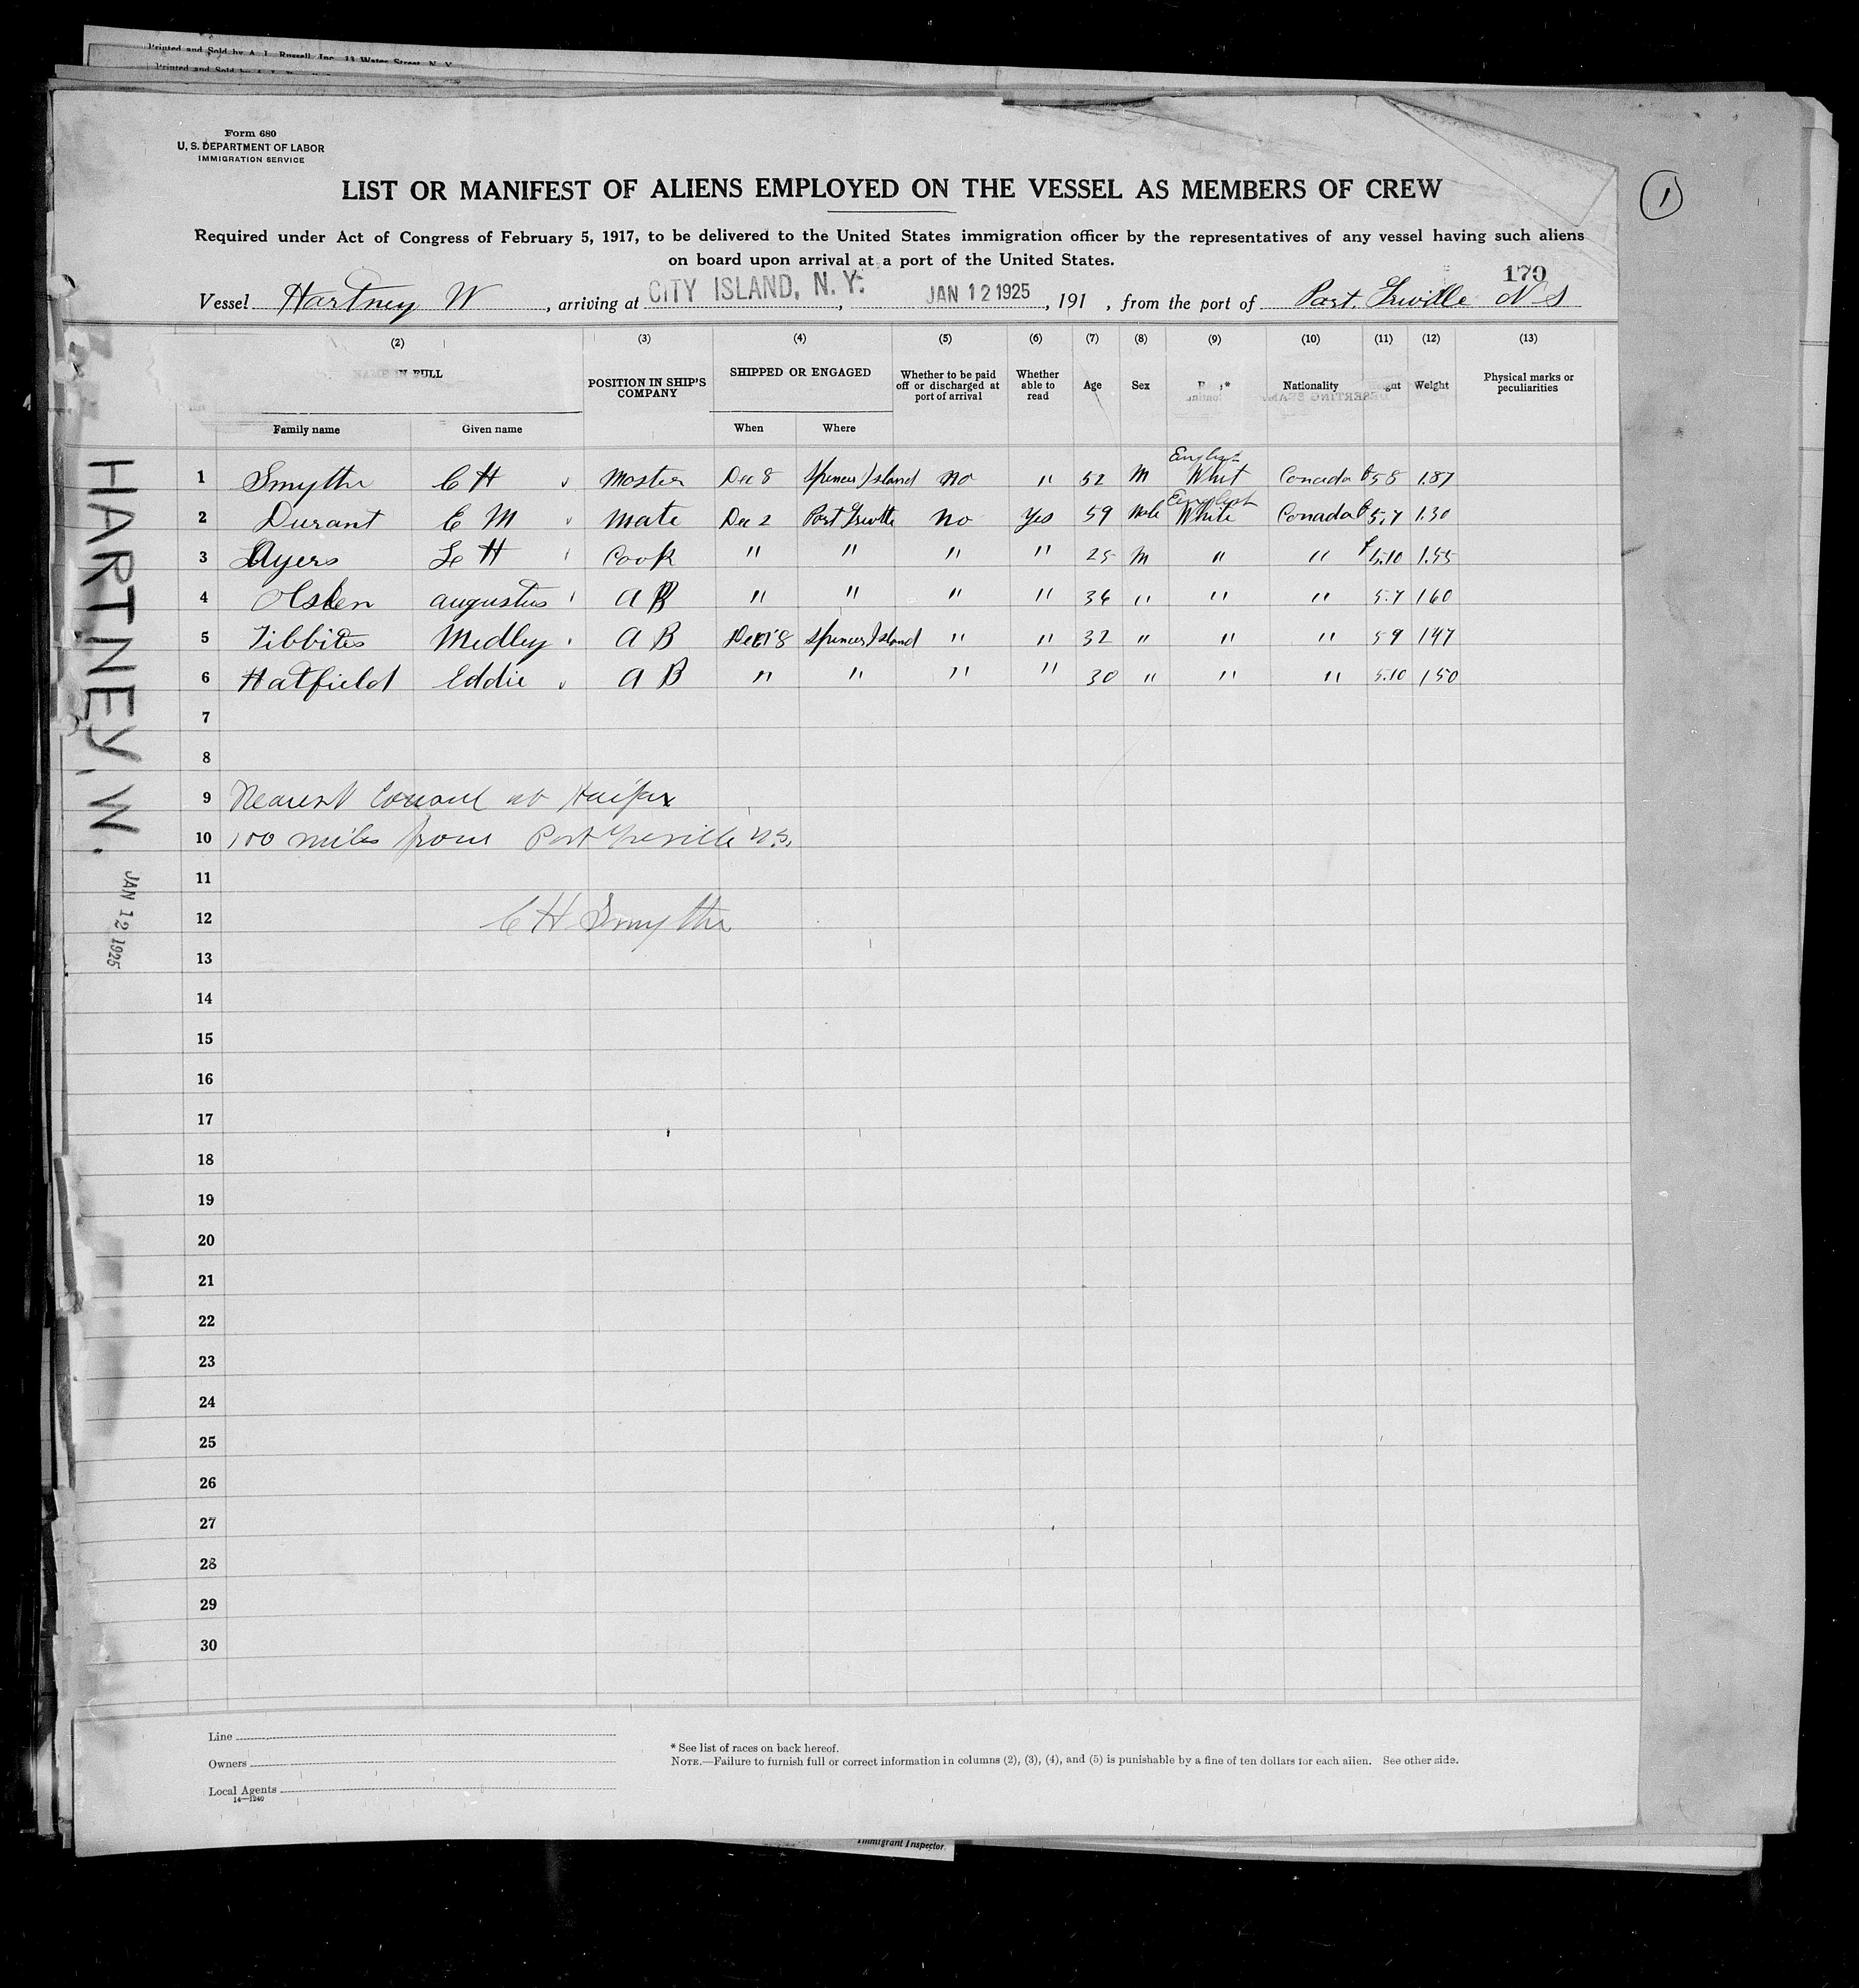 Printed and Sold by A. L. Russell, Inc., 13 Water Street, N. Y.
Printed and Sold by
Form 680
U. S. DEPARTMENT OF LABOR
IMMIGRATION SERVICE
LIST OR MANIFEST OF ALIENS EMPLOYED ON THE VESSEL AS MEMBERS OF CREW
1
Required under Act of Congress of February 5, 1917, to be delivered to the United States immigration officer by the representatives of any vessel having such aliens
on board upon arrival at a port of the United States.
179
Vessel Hartney W, arriving at CITY ISLAND, N. Y., JAN 12 1925, 191 , from the port of Port Greville N S
(2) (3) (4) (5) (6) (7) (8) (9) (10) (11) (12) (13)
NAME IN FULL POSITION IN SHIP'S COMPANY SHIPPED OR ENGAGED Whether to be paid off or discharged at port of arrival Whether able to read Age Sex Nationality Weight Physical marks or peculiarities
Family name Given name When Where
1 Smythe C H Master Dec 8 Spencers Island No " 52 M English Whit Canada 5 8 187
2 Durant C M Mate Dec 2 Port Greville No Yes 59 Male English White Canada 5.7 130
3 Ayers L H Cook " " " " 25 M " " 5.10 1.55
4 Olsten Augustus A B " " " " 36 " " " 5.7 160
5 Tibbites Medley A B Dec 8 Spencers Island " " 32 " " " 5 9 147
6 Hatfield Eddie A B " " " " 30 " " " 5.10 150
7
8
9 Nearest Consul at Haifax
10 100 miles from Port Greville N.S.
11
12 C H Smythe
13
14
15
16
17
18
19
20
21
22
23
24
25
26
27
28
29
30
HARTNEY, W.
JAN 12 1925
Line
Owners
Local Agents
14—1240
* See list of races on back hereof.
NOTE.—Failure to furnish full or correct information in columns (2), (3), (4), and (5) is punishable by a fine of ten dollars for each alien. See other side.
Immigrant Inspector